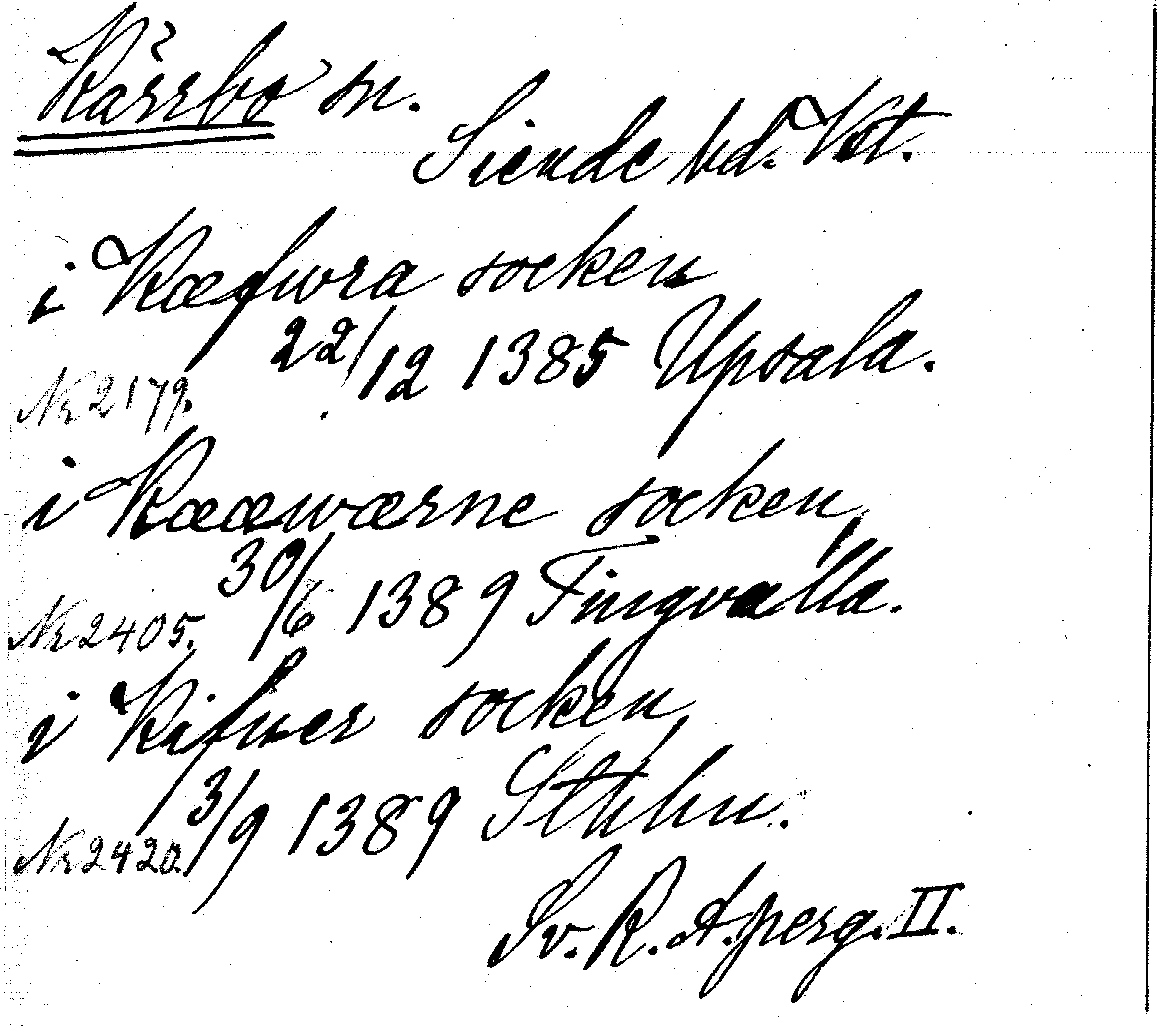 Kärrbo sn.
Siende hd. Vst.
i Kæfwra socken
22/12 1385 Upsala.
Nr 2179.
i Kææwærne socken,
30/6 1389 Tingvalla.
Nr 2405.
i Kifuer socken,
3/9 1389 Sthlm.
Nr 2420.
Sv. R. A. perg. II.